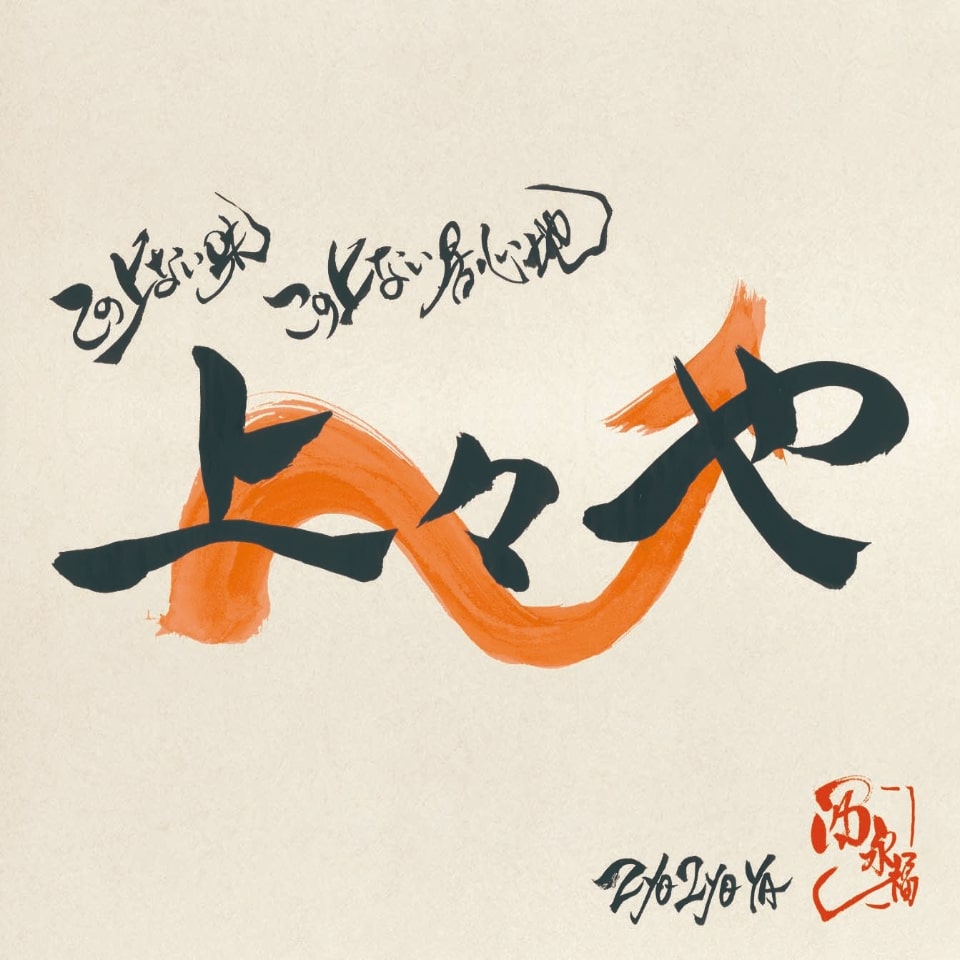 この上ない味 この上ない居心地
上々や
ZYOZYOYA
西永福